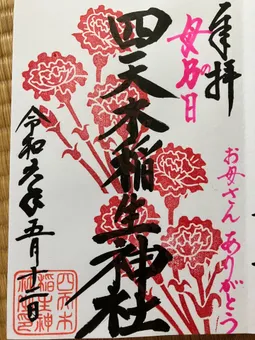 奉拝
母の日
お母さん ありがとう
四天木稲生神社
令和六年五月十二日
四天木
稲生神
社印